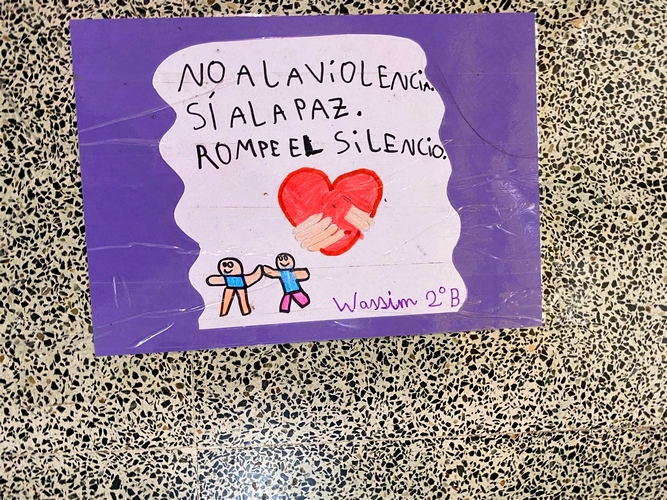 NO A LA VIOLENCIA.
SÍ A LA PAZ.
ROMPE EL SILENCIO.
Wassim 2º B